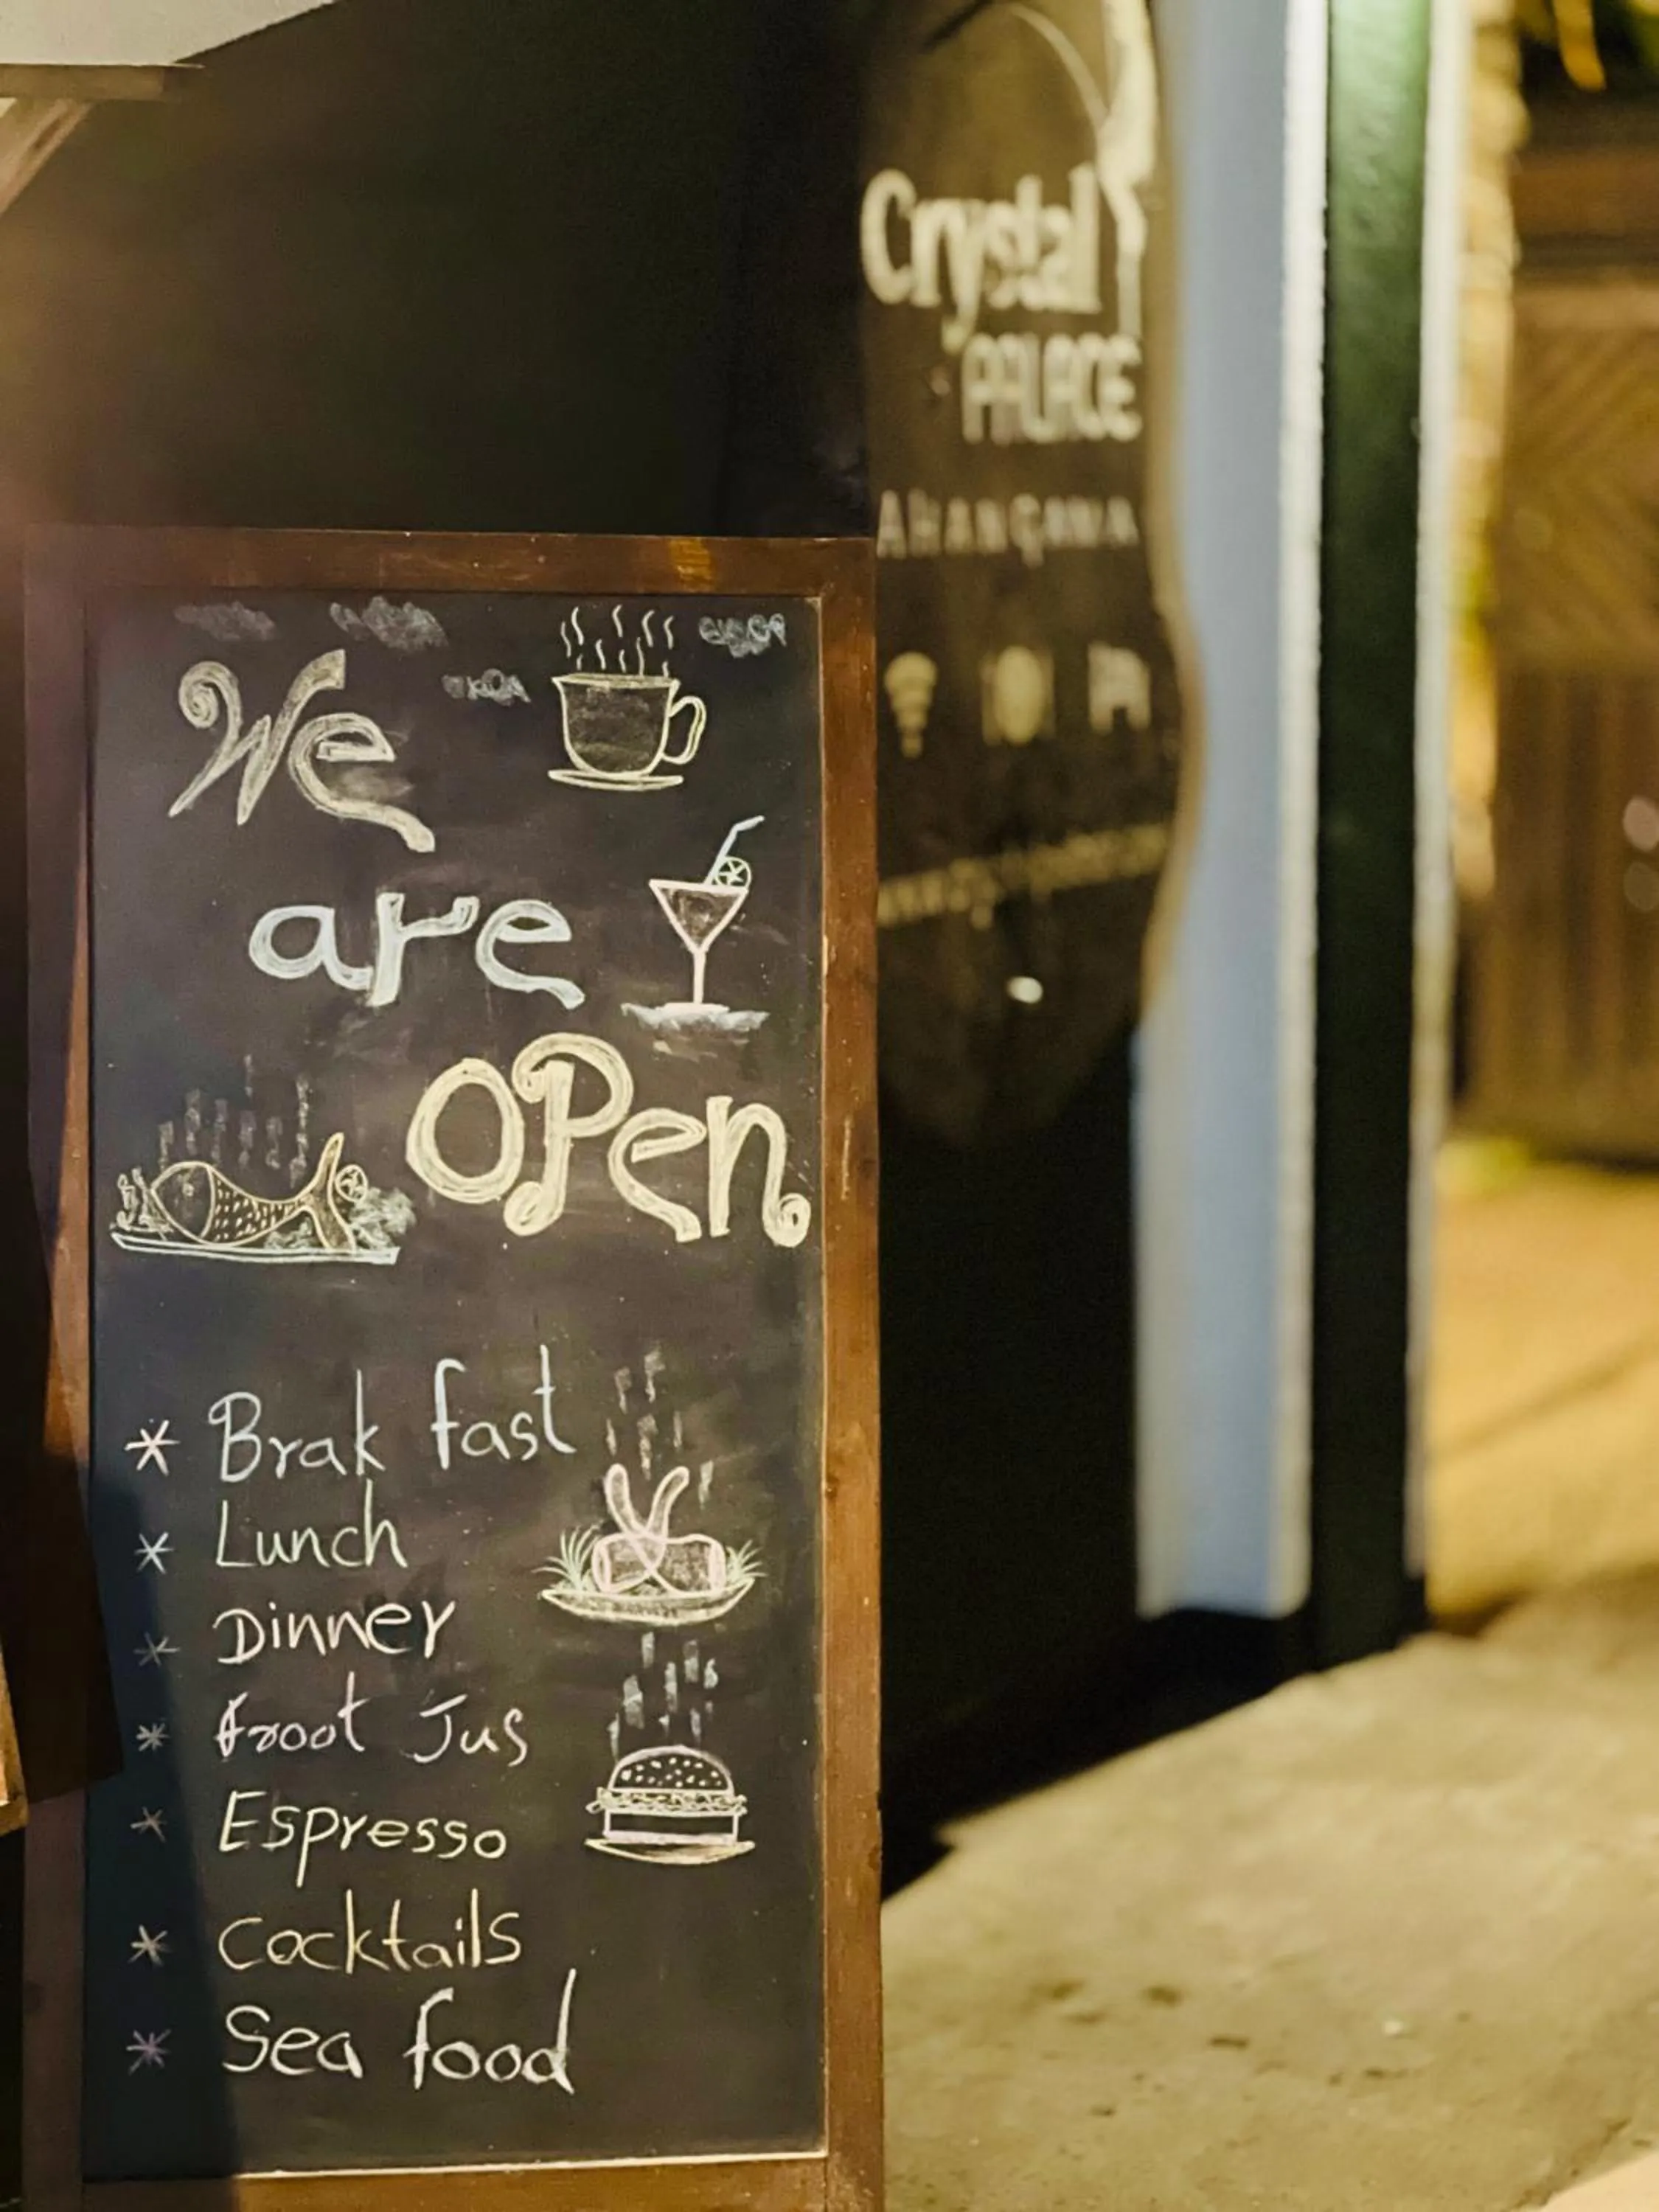 We
are
OPen
* Brak fast
* Lunch
* Dinner
* froot Jus
* Espresso
* Cocktails
* Sea food
Crystal
PALACE
AHANGAMA